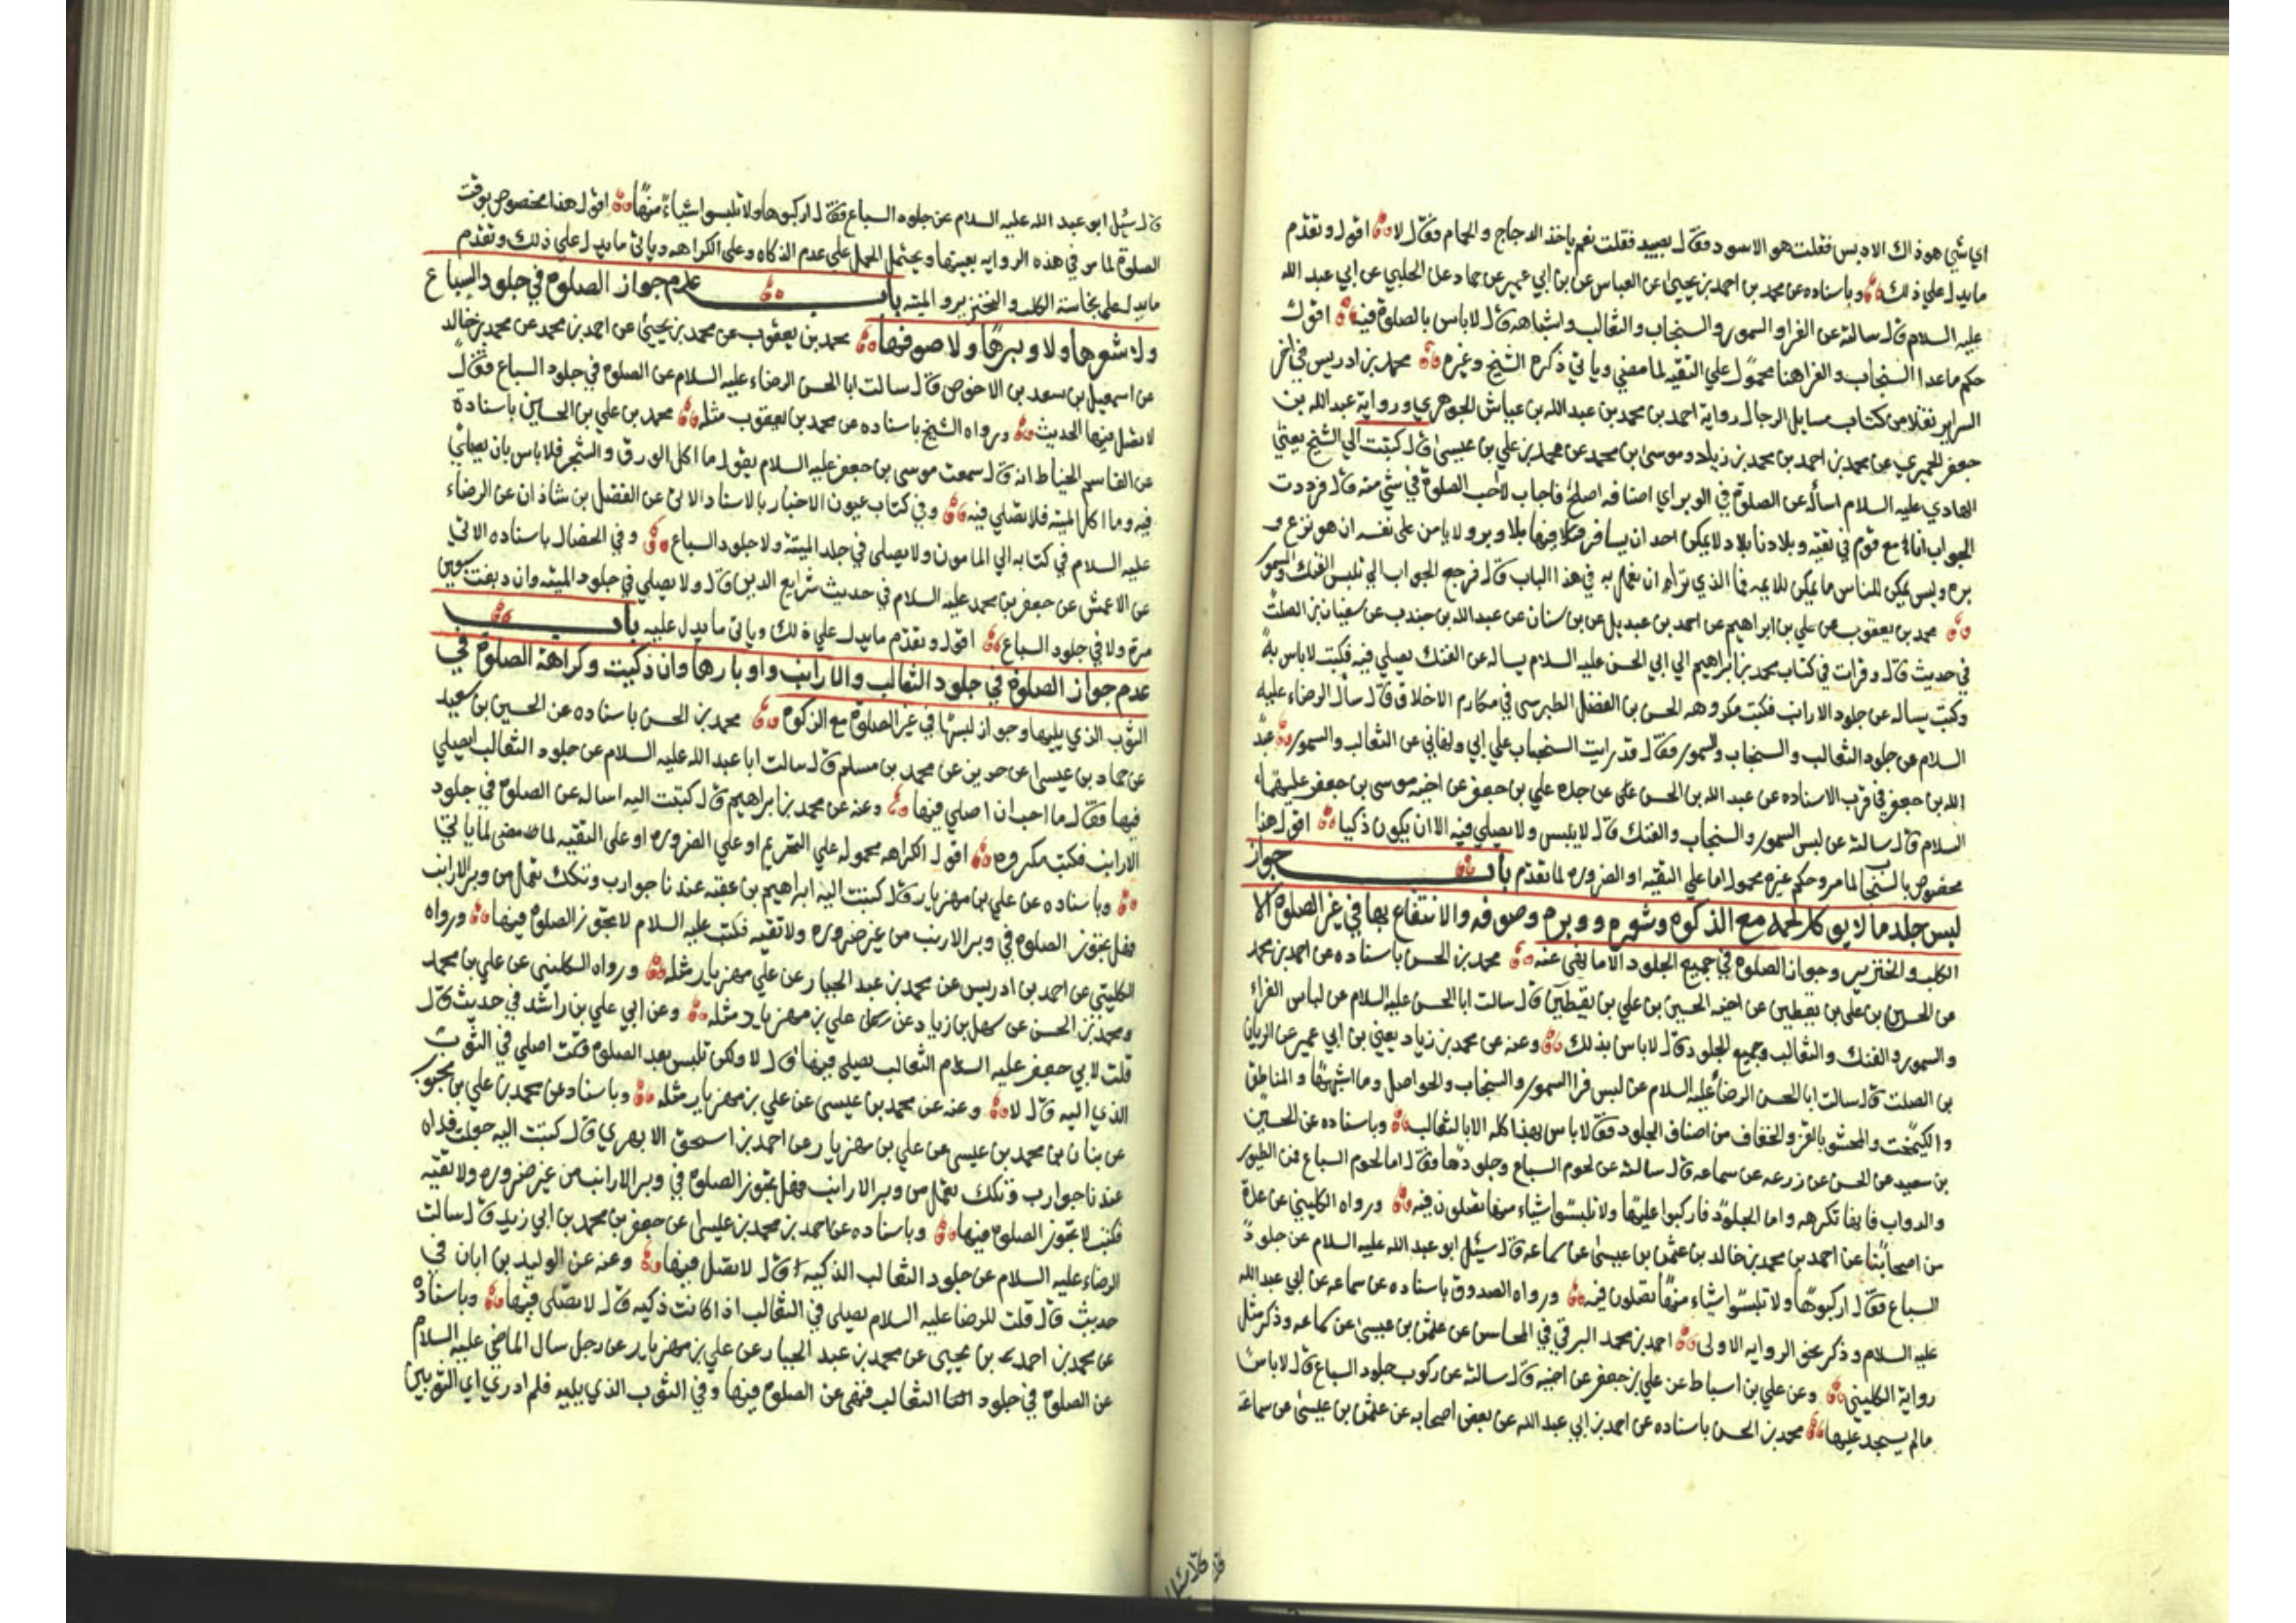 اي شي هو ذاك الادبس فقلت هو الاسود فقال يصيد فقلت نعم ياخذ الدجاج والحمام فقال لا اقول وتقدم
مايدل علي ذلك وباسناده عن محمد بن احمد بن يحيى عن العباس عن بن ابي عمير عن حماد عن الحلبي عن ابي عبد الله
عليه السلام قال سالته عن الفرا والسمور والسنجاب والثعالب واشباهه قال لاباس بالصلوة فيه اقول
حكم ماعدا السنجاب والفرا هنا محمول علي التقيه لما مضي وياتي ذكره الشيخ وغيره محمد بن ادريس في اخر
السراير نقلا من كتاب مسايل الرجال رواية احمد بن محمد بن عبد الله بن عياش الجوهري ورواية عبد الله بن
جعفر الحميري عن محمد بن احمد بن محمد بن زياد وموسى بن محمد عن محمد بن علي بن عيسى قال كتبت الي الشيخ يعني
الهادي عليه السلام اسأله عن الصلوة في الوبر اي اصنافه اصلح فاجاب لا احب الصلوة في شي منه قال فرددت
الجواب انا مع قوم في تقيه وبلادنا بلاد لايمكن احد ان يسافر فيها بلا وبر ولا يامن على نفسه ان هو نزع و
بره وليس يمكن للناس ما يمكن للايمه فما الذي تراه ان نعمل به في هذا الباب قال فرجع الجواب الي تلبس الفنك والسمور
محمد بن يعقوب عن علي بن ابراهيم عن احمد بن عبديل عن بن سنان عن عبد الله بن جندب عن سفيان بن الصلت
في حديث قال وقرات في كتاب محمد بن ابراهيم الي ابي الحسن عليه السلام يساله عن الفنك يصلي فيه فكتب لاباس به
وكتب يساله عن جلود الارانب فكتب مكروهه الحسن بن الفضل الطبرسي في مكارم الاخلاق قال سأل الرضاء عليه
السلام عن جلود الثعالب والسنجاب والسمور فقال قد رايت السنجاب علي ابي ونهاني عن الثعالب والسمور عبد
الله بن جعفر في قرب الاسناد عن عبد الله بن الحسن عن جده علي بن جعفر عن اخيه موسى بن جعفر عليهما
السلام قال سالته عن لبس السمور والسنجاب والفنك قال لايلبس ولا يصلي فيه الا ان يكون ذكيا اقول هذا
مخصوص بالسنجاب لما مر وحكم غيره محمول اما علي التقيه او الضروره لما تقدم باب جواز
لبس جلد ما لا يوكل لحمه مع الذكوه وشعره ووبره وصوفه والانتفاع بها في غير الصلوة الا
الكلب والخنزير وجواز الصلوة في جميع الجلود الا ما نهي عنه محمد بن الحسن باسناده عن احمد بن محمد
عن الحسن بن علي بن يقطين عن اخيه الحسين بن علي بن يقطين قال سالت ابا الحسن عليه السلام عن لباس الفراء
والسمور والفنك والثعالب وجميع الجلود قال لاباس بذلك وعنه عن محمد بن زياد يعني بن ابي عمير عن الريان
بن الصلت قال سالت ابا الحسن الرضاء عليه السلام عن لبس فرا السمور والسنجاب والحواصل وما اشبهها والمناطق
والكيمخت والمحشو بالقز والخفاف من اصناف الجلود فقال لاباس بهذا كله الا بالثعالب وباسناده عن الحسين
بن سعيد عن الحسن عن زرعه عن سماعه قال سالته عن لحوم السباع وجلودها فقال اما لحوم السباع فمن الطيور
والدواب فانها نكرهه واما الجلود فاركبوا عليها ولا تلبسوا شياء منها تصلون فيه ورواه الكليني عن عدة
من اصحابنا عن احمد بن محمد بن خالد عن عثمن بن عيسى عن سماعه قال سئل ابو عبد الله عليه السلام عن جلود
السباع فقال اركبوها ولا تلبسوا شياء منها تصلون فيه ورواه الصدوق باسناده عن سماعه عن ابي عبد الله
عليه السلام وذكر نحو الروايه الاولى احمد بن محمد البرقي في المحاسن عن عثمن بن عيسى عن سماعه وذكر مثل
رواية الكليني وعن علي بن اسباط عن علي بن جعفر عن اخيه قال سالته عن ركوب جلود السباع قال لاباس
مالم يسجد عليها محمد بن الحسن باسناده عن احمد بن ابي عبد الله عن بعض اصحابه عن عثمن بن عيسى عن سماعة
قال سئل
قال سئل ابو عبد الله عليه السلام عن جلود السباع فقال اركبوها ولا تلبسوا شياء منها اقول هذا مخصوص بوقت
الصلوة لما مر في هذه الروايه بعينها ويحتمل الحمل على عدم الذكاه وعلى الكراهه وياتي مايدل علي ذلك وتقدم
مايدل على نجاسة الكلب والخنزير والميته باب عدم جواز الصلوة في جلود السباع
ولا شعرها ولا وبرها ولا صوفها محمد بن يعقوب عن محمد بن يحيى عن احمد بن محمد عن محمد بن خالد
عن اسمعيل بن سعد بن الاحوص قال سالت ابا الحسن الرضاء عليه السلام عن الصلوة في جلود السباع فقال
لا تصل فيها الحديث ورواه الشيخ باسناده عن محمد بن يعقوب مثله محمد بن علي بن الحسين باسناده
عن القاسم الخياط انه قال سمعت موسى بن جعفر عليه السلام يقول ما اكل الورق والشجر فلا باس بان يصلي
فيه وما اكل الميته فلا تصلي فيه وفي كتاب عيون الاخبار بالاسناد الاتي عن الفضل بن شاذان عن الرضاء
عليه السلام في كتابه الي المامون ولا يصلى في جلد الميتة ولا جلود السباع وفي الخصال باسناده الاتي
عن الاعمش عن جعفر بن محمد عليه السلام في حديث شرايع الدين قال ولا يصلي في جلود الميته وان دبغت سبعين
مرة ولا في جلود السباع اقول وتقدم مايدل علي ذلك وياتي مايدل عليه باب
عدم جواز الصلوة في جلود الثعالب والارانب واوبارها وان ذكيت وكراهة الصلوة في
الثوب الذي يليها وجواز لبسها في غير الصلوة مع الذكوة محمد بن الحسن باسناده عن الحسين بن سعيد
عن حماد بن عيسى عن حريز عن محمد بن مسلم قال سالت ابا عبد الله عليه السلام عن جلود الثعالب ايصلي
فيها فقال ما احب ان اصلي فيها وعنه عن محمد بن ابراهيم قال كتبت اليه اساله عن الصلوة في جلود
الارانب فكتب مكروه اقول الكراهه محموله علي التحريم او علي الضروره او على التقيه لما مضى لما ياتي
وباسناده عن علي بن مهزيار قال كتبت اليه ابراهيم بن عقبه عندنا جوارب وتكك تعمل من وبر الارانب
فهل يجوز الصلوة في وبر الارانب من غير ضروره ولا تقيه فكتب عليه السلام لا يجوز الصلوة فيها ورواه
الكليني عن احمد بن ادريس عن محمد بن عبد الجبار عن علي مهزيار مثله ورواه الكليني عن علي بن محمد
ومحمد بن الحسن عن سهل بن زياد عن علي بن مهزيار مثله وعن ابي علي بن راشد في حديث قال
قلت لابي جعفر عليه السلام الثعالب يصلي فيها قال لا ولكن تلبس بعد الصلوة قلت اصلي في الثوب
الذي اليه قال لا وعنه عن محمد بن عيسى عن علي بن مهزيار مثله وباسناد عن محمد بن علي بن محبوب
عن بنان بن محمد بن عيسى عن علي بن مهزيار عن احمد بن اسحق الابهري قال كتبت اليه جعلت فداه
عندنا جوارب وتكك تعمل من وبر الارانب فهل يجوز الصلوة في وبر الارانب من غير ضروره ولا تقيه
فكتب لا تجوز الصلوة فيها وباسناده عن احمد بن محمد بن عيسى عن جعفر بن محمد بن ابي زيد قال سالت
الرضاء عليه السلام عن جلود الثعالب الذكيه قال لا تصل فيها وعنه عن الوليد بن ابان في
حديث قال قلت للرضا عليه السلام يصلي في الثعالب اذا كانت ذكيه قال لا تصلي فيها وباسناده
عن محمد بن احمد بن يحيى عن محمد بن عبد الجبار عن علي بن مهزيار عن رجل سال الماضي عليه السلام
عن الصلوة في جلود الثعالب فنهى عن الصلوة فيها وفي الثوب الذي يليه فلم ادري اي الثوبين